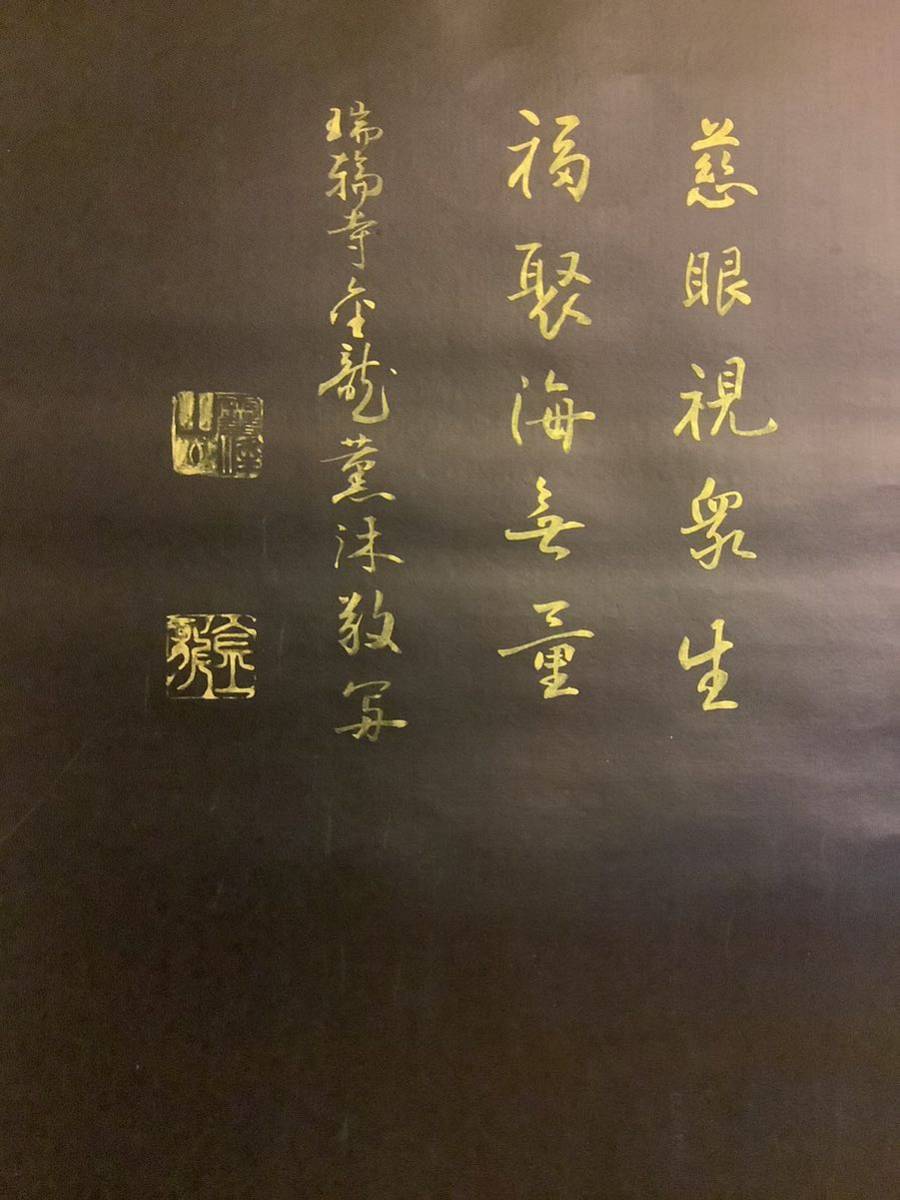 慈眼視衆生
福聚海無量
瑞龍寺金龍薰沐敬写